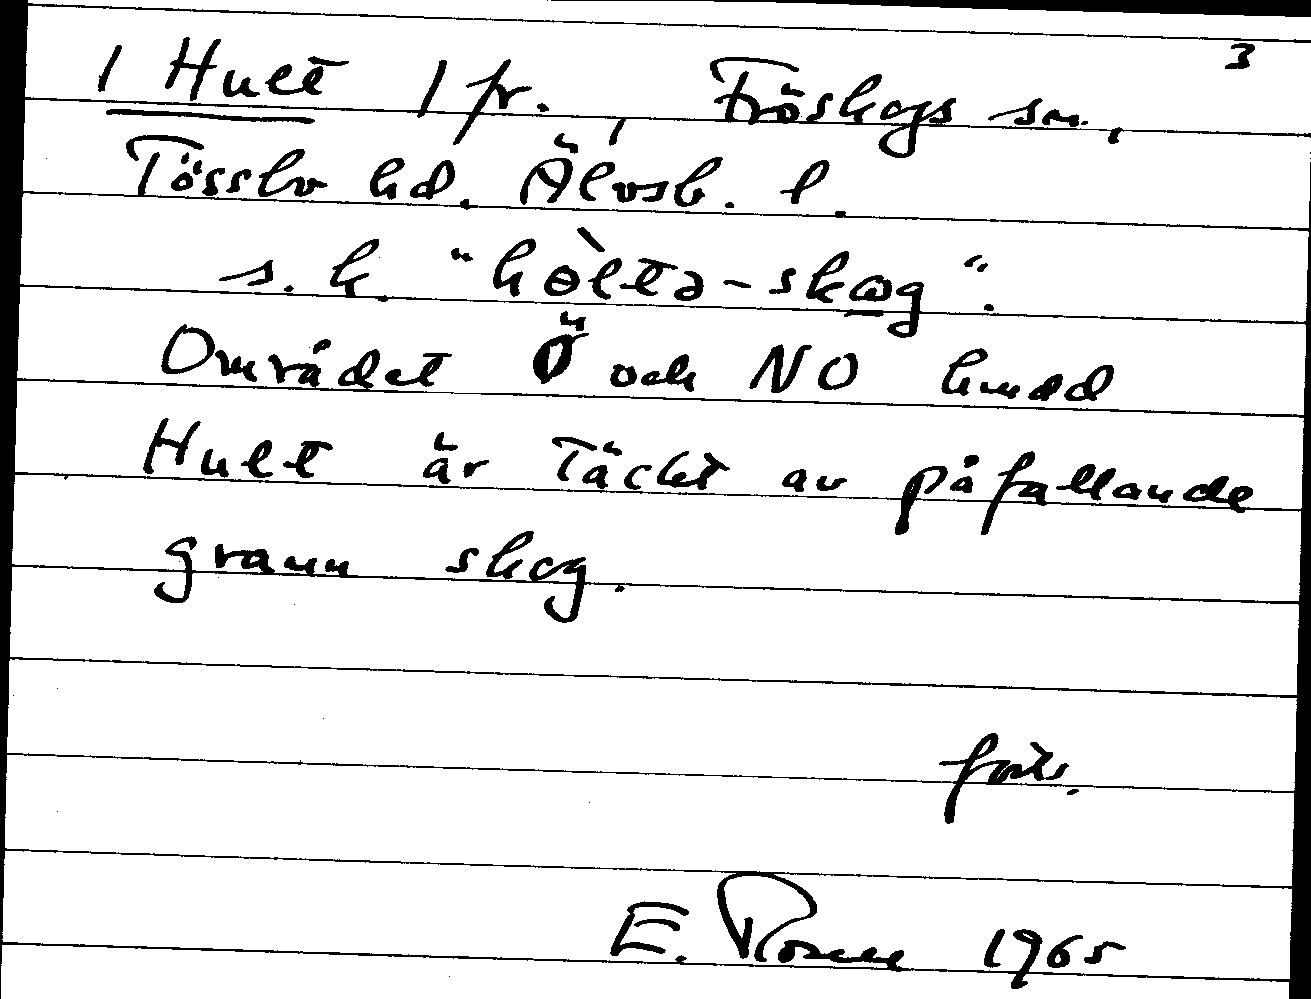 3
1 Hult 1 fr., Fröskogs sn.,
Tössbo hd. Älvsb. l.
s. k. "hòlta-skog".
Området Ö och NO
Hult är täckt av påfallande
grann skog.
forts.
E. Rosell 1965